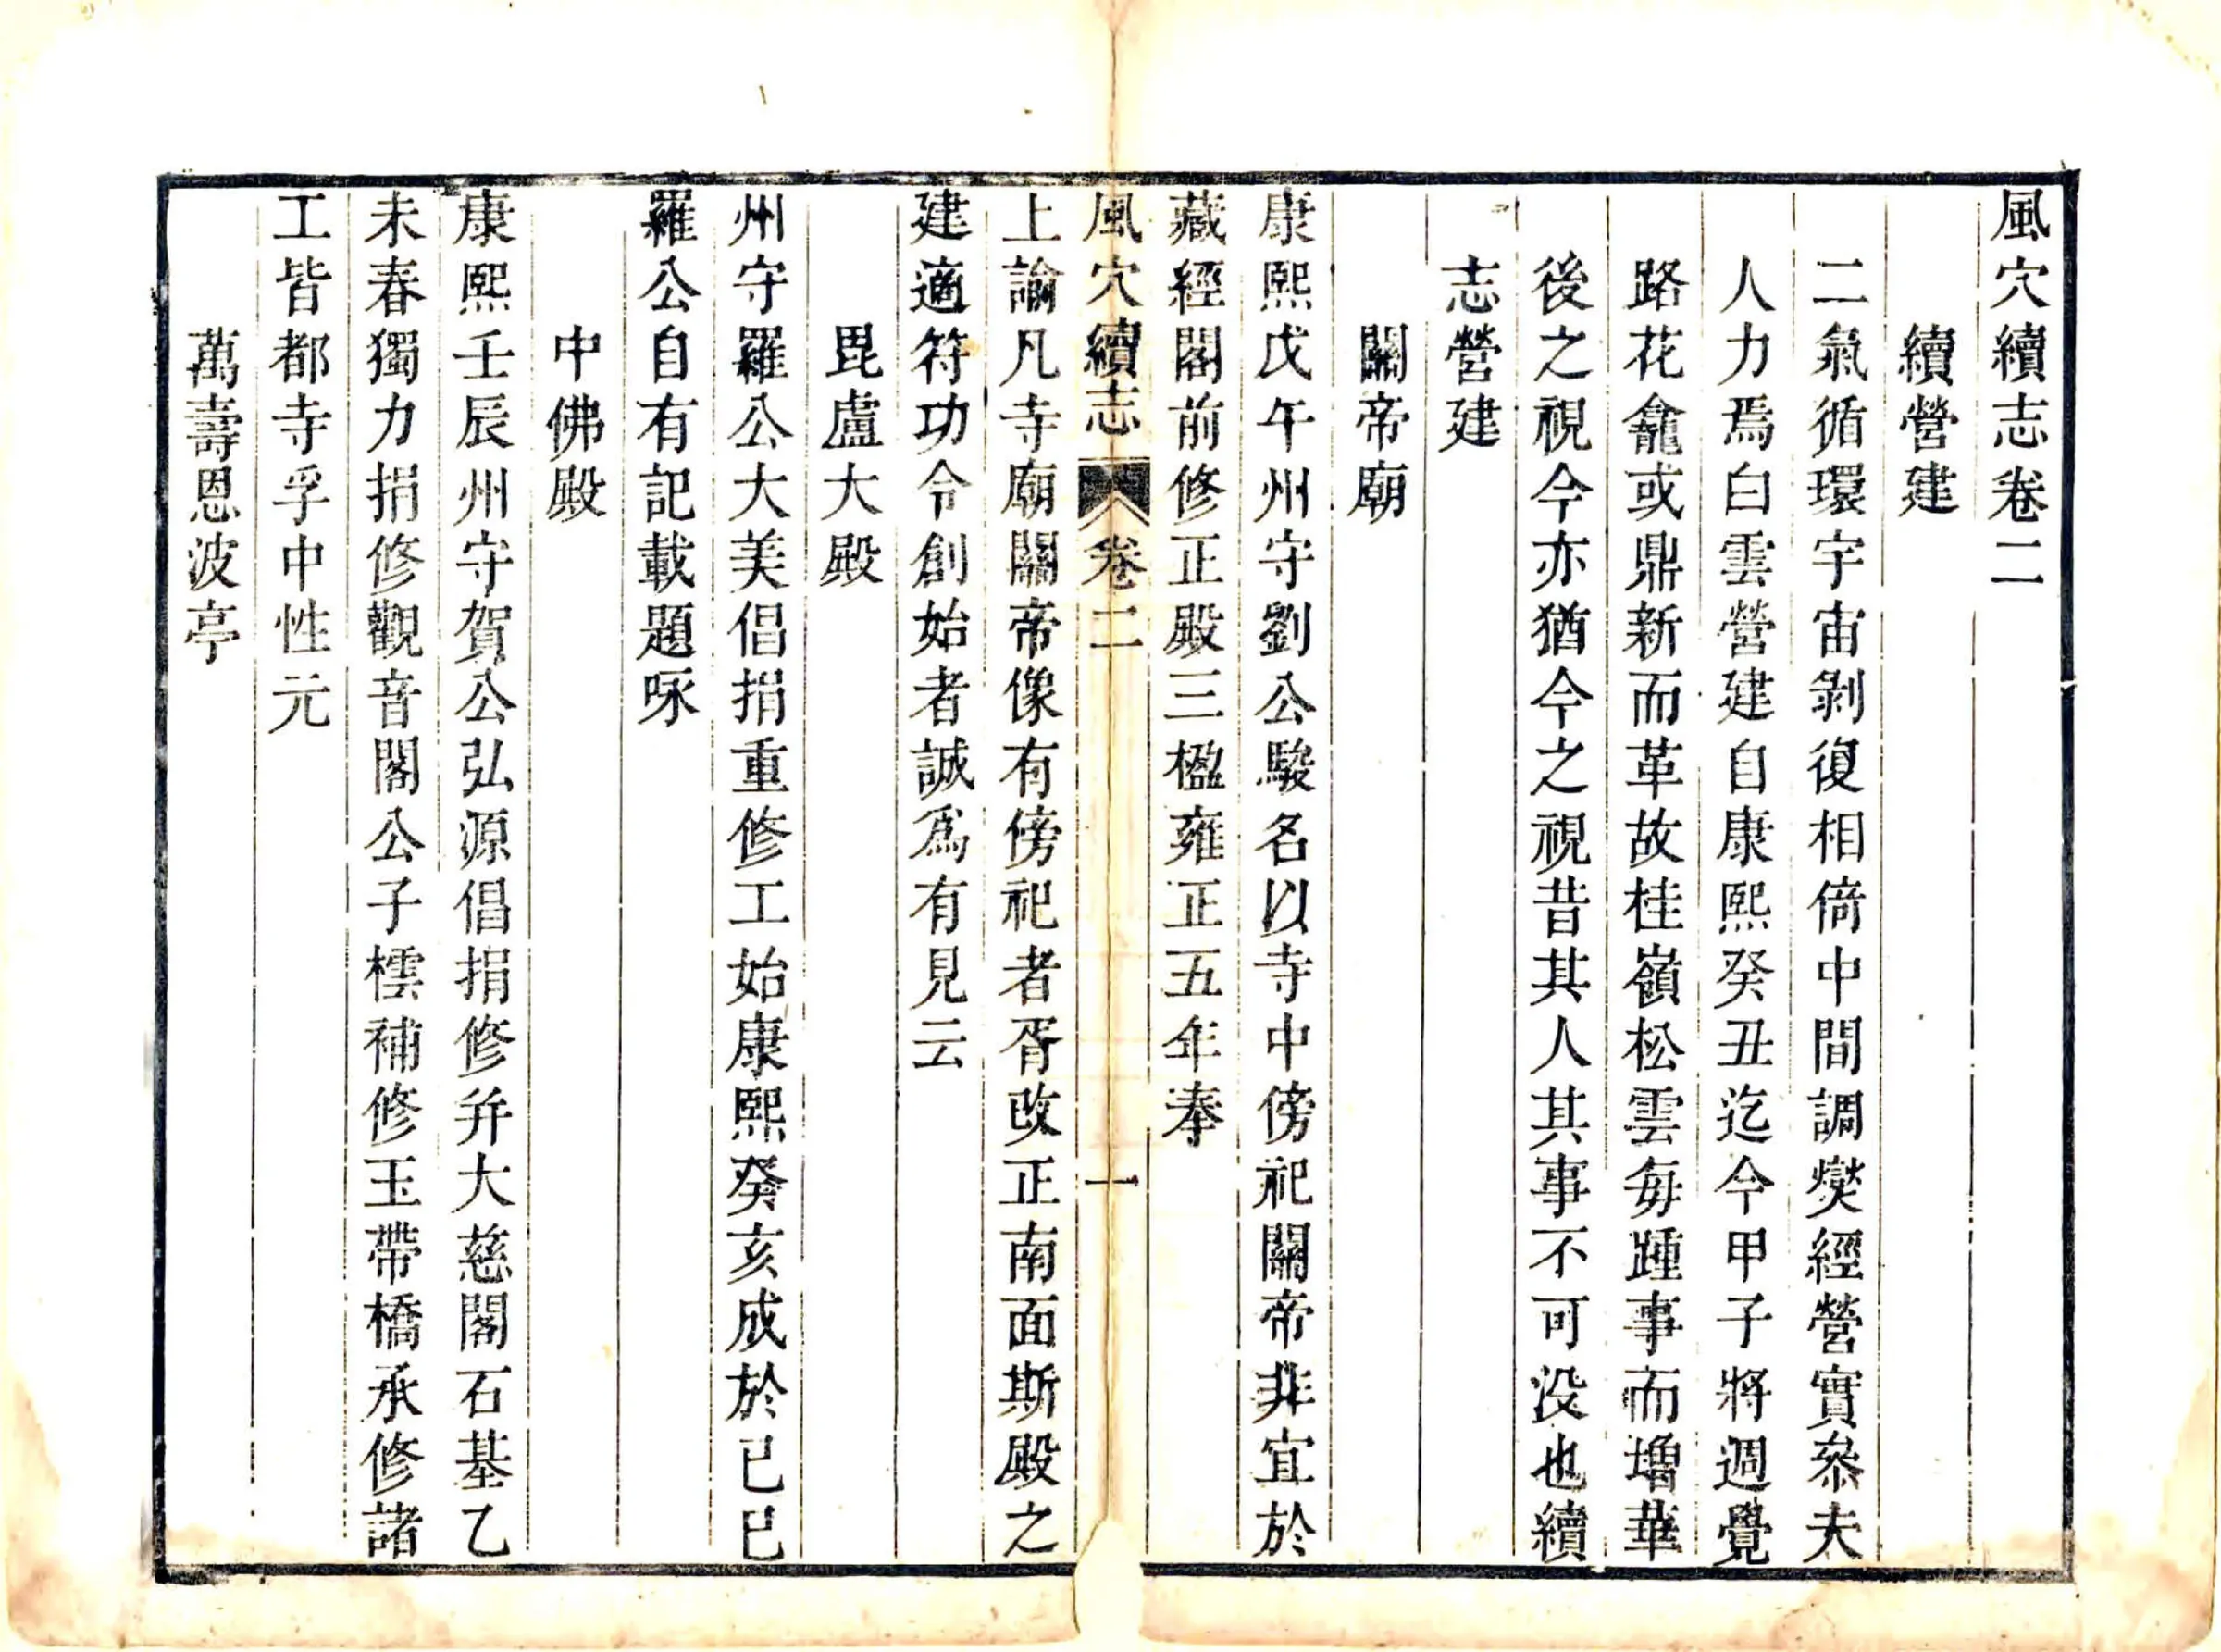 風穴續志卷二
續營建
二氣循環宇宙剝復相倚中間調燮經營實叅夫
人力焉白雲營建自康熙癸丑迄今甲子將週覺
路花龕或鼎新而革故桂嶺松雲每踵事而增華
後之視今亦猶今之視昔其人其事不可没也續
志營建
關帝廟
康熙戊午州守劉公駿名以寺中傍祀關帝非宜於
藏經閣前修正殿三楹雍正五年奉
風穴續志 卷二 一
上諭凡寺廟關帝像有傍祀者胥改正南面斯殿之
建適符功令創始者誠爲有見云
毘盧大殿
州守羅公大美倡捐重修工始康熙癸亥成於己巳
羅公自有記載題咏
中佛殿
康熙壬辰州守賀公弘源倡捐修并大慈閣石基乙
未春獨力捐修觀音閣公子橒補修玉帶橋承修諸
工皆都寺孚中性元
萬壽恩波亭